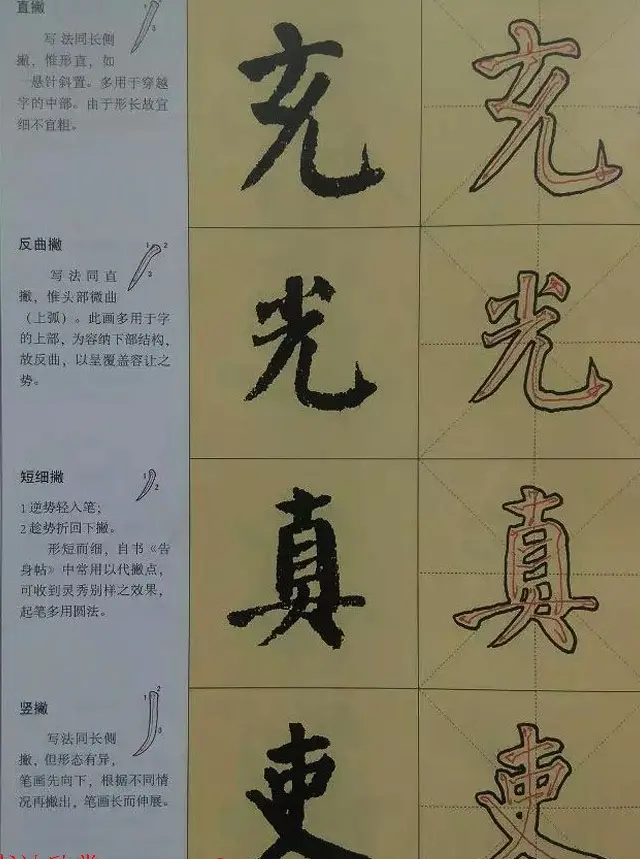 直撇
写法同长侧
撇，惟形直，如
一悬针斜置。多用于穿越
字的中部。由于形长故宜
细不宜粗。
充
充
反曲撇
写法同直
撇，惟头部微曲
（上弧）。此画多用于字
的上部，为容纳下部结构，
故反曲，以呈覆盖容让之
势。
光
光
短细撇
1 逆势轻入笔；
2 趁势折回下撇。
形短而细，自书《告
身帖》中常用以代撇点，
可收到灵秀别样之效果，
起笔多用圆法。
真
真
竖撇
写法同长侧
撇，但形态有异，
笔画先向下，根据不同情
况再撇出，笔画长而伸展。
吏
吏